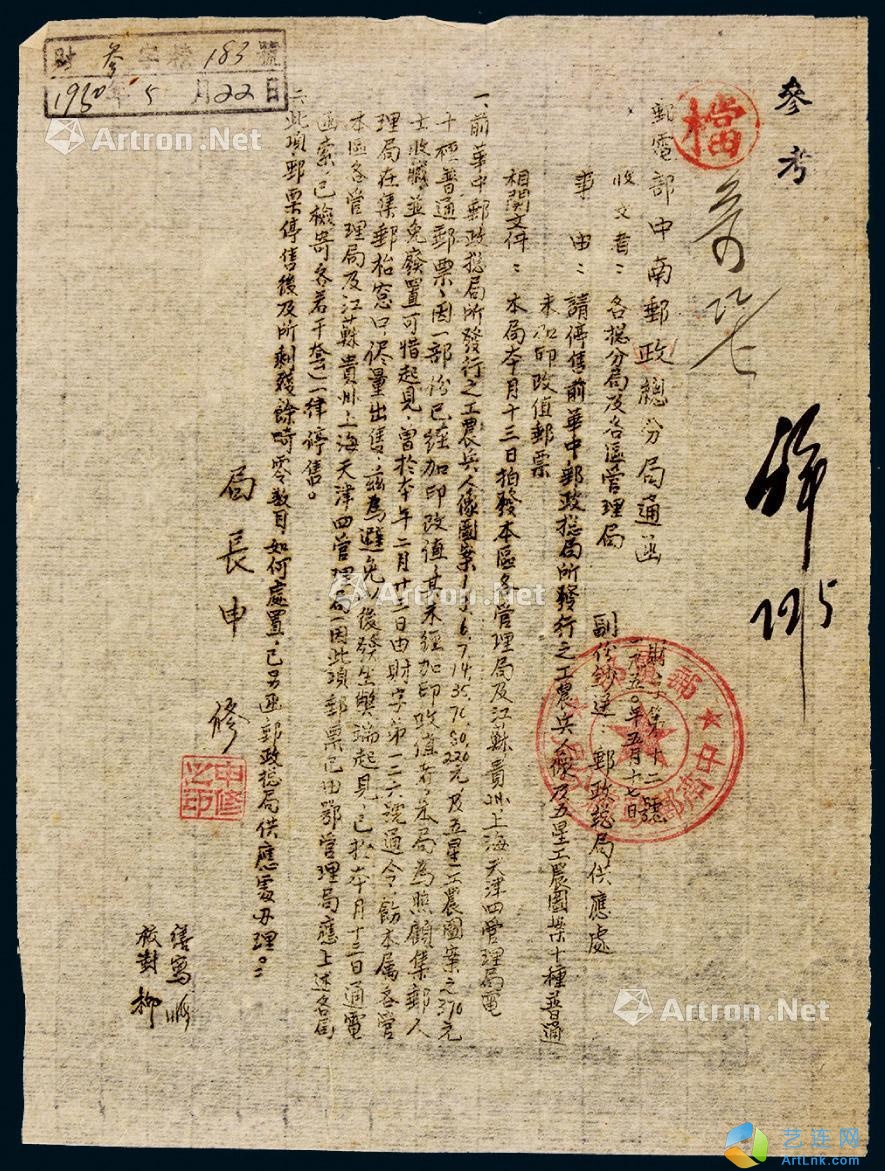 參考
檔
郵電部中南郵政總分局通函
財字第十二號
一九五〇年五月十七日
收文者：各總分局及各區管理局
副份鈔送：郵政總局供應處
事由：請停售前華中郵政總局所發行之工農兵人像及五星工農圖案十種普通
未加印改值郵票
相關文件：本局本月十三日拍發本區各管理局及江蘇貴州上海天津四管理局電
一、前華中郵政總局所發行之工農兵人像圖案1.3.6.7.14.35.70.80.220元及五星工農圖案之370元
十種普通郵票，因一部份已經加印改值，其未經加印改值者，本局為照顧集郵人
士收藏，並免廢置可惜起見，曾於本年二月廿三日由財字第一二六號通令，飭本屬各管
理局在集郵枱窓口，侭量出售，茲為避免以後發生弊端起見，已於本月十三日通電
本區各管理局及江蘇貴州上海天津四管理局（因此項郵票已由鄂管理局應上述各局
函索，已檢寄各若干套）一律停售。
二、此項郵票停售後及所剩殘餘畸零数目，如何處置，已另函郵政總局供應處办理。
局長申修
申修之印
繕寫
校對 柳
財 參 字 檔 183 號
1950年5月22日
Artron.Net
Artron.Net
Artron.Net
Artron.Net
Artron.Net
Artron.Net
艺连网
ArtLnk.com